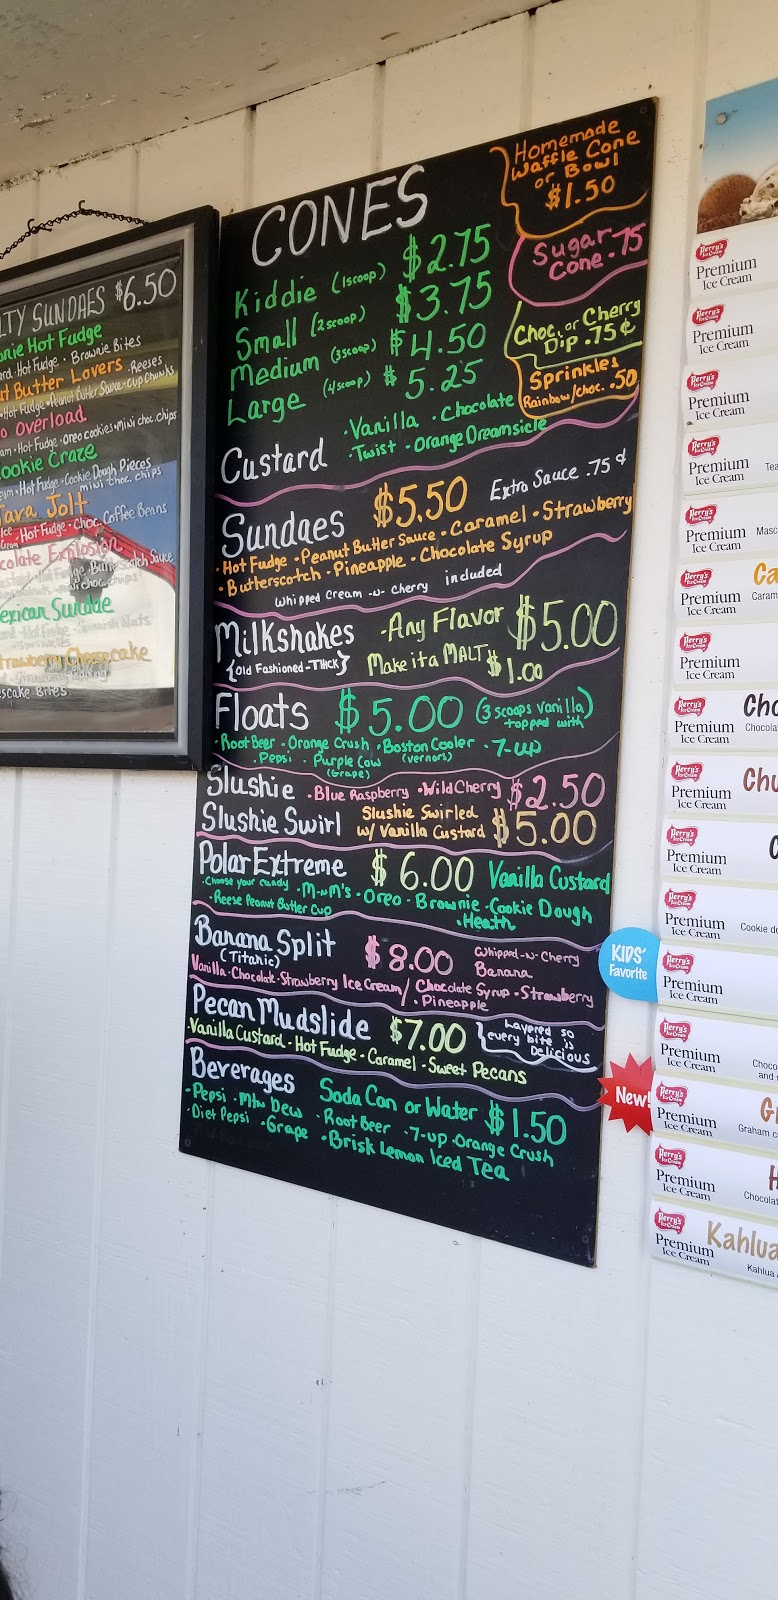 LTY SUNDAES $6.50
nie Hot Fudge
ard · Hot Fudge · Brownie Bites
ut Butter Lovers · Reeses
· Hot Fudge · Peanut Butter Sauce · cup Chunks
o overload
am · Hot Fudge · Oreo cookies · mini choc. chips
ookie Craze
eam · Hot Fudge · Cookie Dough Pieces
mini choc. chips
Java Jolt
Hot Fudge · Choc. Coffee Beans
colate Explosion
exican Sundae
trawberry Cheesecake
scake Bites
CONES
Kiddie (1scoop) $2.75
Small (2scoop) $3.75
Medium (3scoop) $4.50
Large (4scoop) $5.25
Homemade
Waffle Cone
or Bowl
$1.50
Sugar
Cone .75
Choc. or Cherry
Dip .75¢
Sprinkles
Rainbow/choc. .50
Custard · Vanilla · Chocolate
· Twist · Orange Dreamsicle
Sundaes $5.50 Extra Sauce .75¢
· Hot Fudge · Peanut Butter Sauce · Caramel · Strawberry
· Butterscotch · Pineapple · Chocolate Syrup
Whipped Cream -n- Cherry included
Milkshakes - Any Flavor $5.00
{Old Fashioned-THICK} Make it a MALT $1.00
Floats $5.00 (3 scoops vanilla)
topped with
· Root Beer · Orange Crush · Boston Cooler · 7-UP
(vernors)
· Pepsi · Purple Cow
(Grape)
Slushie · Blue Raspberry · Wild Cherry $2.50
Slushie Swirl Slushie Swirled
w/ Vanilla Custard $5.00
Polar Extreme $6.00 Vanilla Custard
· Choose your candy · M-n-M's · Oreo · Brownie · Cookie Dough
· Reese Peanut Butter Cup · Heath
Banana Split $8.00 Whipped-n-Cherry
(Titanic) Banana
Vanilla · Chocolate · Strawberry Ice Cream/ Chocolate Syrup · Strawberry
· Pineapple
Pecan Mudslide $7.00 {Layered so
every bite is
Delicious
· Vanilla Custard · Hot Fudge · Caramel · Sweet Pecans
Beverages Soda Can or Water $1.50
· Pepsi · Mtn Dew · Root Beer · 7-up · Orange Crush
· Diet Pepsi · Grape · Brisk Lemon Iced Tea
Perry's
Ice Cream
Premium
Ice Cream
Perry's
Ice Cream
Premium
Ice Cream
Perry's
Ice Cream
Premium
Ice Cream
Perry's
Ice Cream
Premium
Ice Cream
Tea
Perry's
Ice Cream
Premium
Ice Cream
Masc
Perry's
Ice Cream
Premium
Ice Cream
Ca
Caram
Perry's
Ice Cream
Premium
Ice Cream
Perry's
Ice Cream
Premium
Ice Cream
Cho
Chocola
Perry's
Ice Cream
Premium
Ice Cream
Chu
Choc
Perry's
Ice Cream
Premium
Ice Cream
C
Perry's
Ice Cream
Premium
Ice Cream
Cookie do
KIDS'
Favorite
Perry's
Ice Cream
Premium
Ice Cream
Perry's
Ice Cream
Premium
Ice Cream
Choco
and
New!
Perry's
Ice Cream
Premium
Ice Cream
G
Graham c
Perry's
Ice Cream
Premium
Ice Cream
H
Chocolat
Perry's
Ice Cream
Premium
Ice Cream
Kahlua
Kahlua